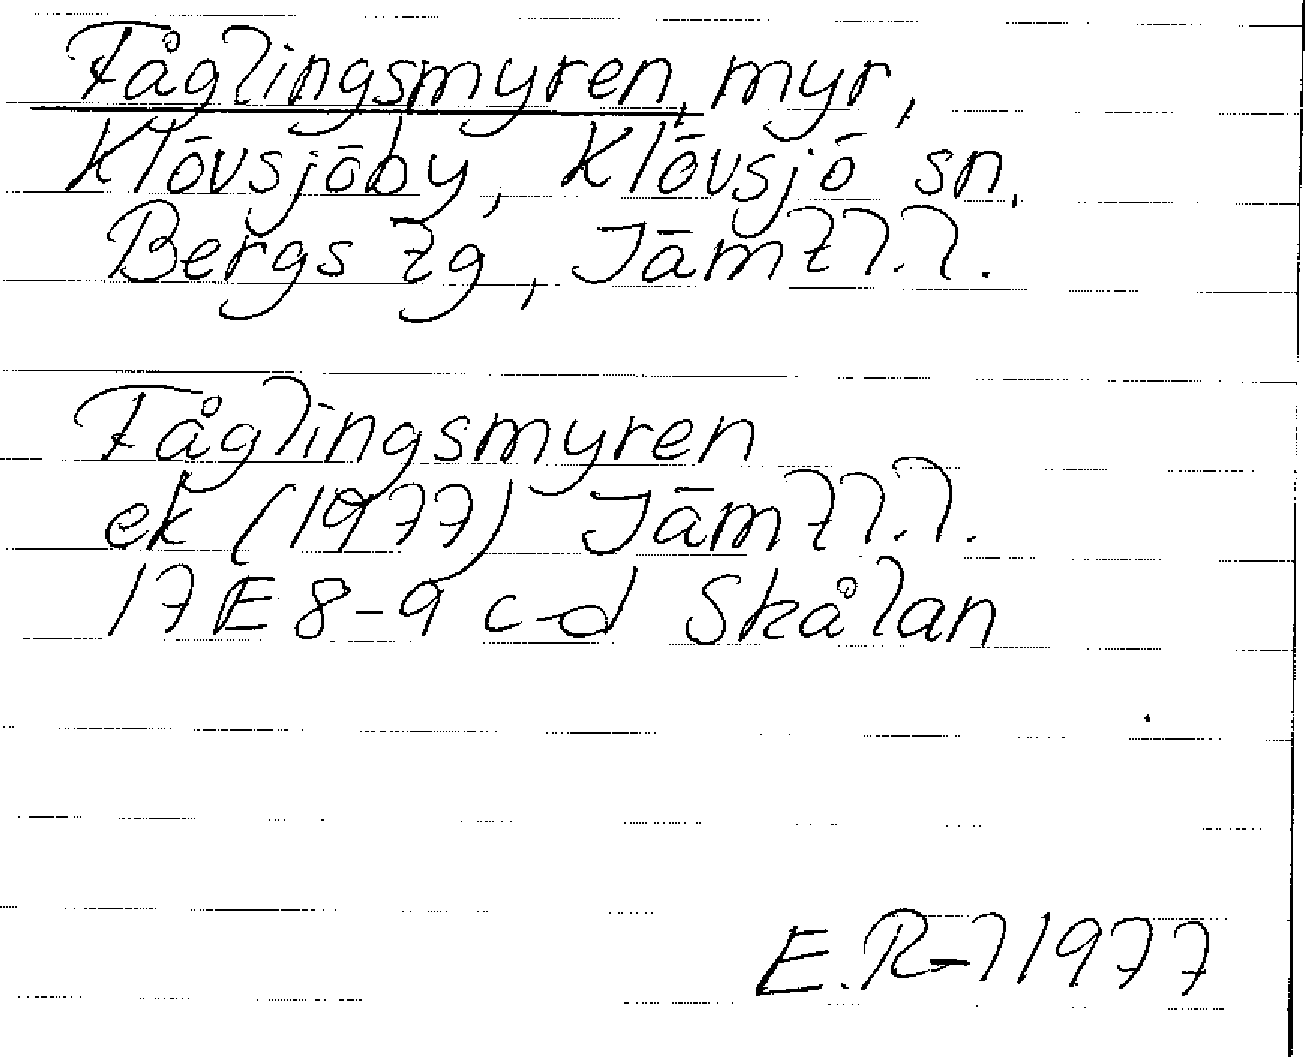 Fåglingsmyren, myr,
Klövsjöby, Klövsjö sn,
Bergs tg, Jämtl.l.
Fåglingsmyren
ek (1977) Jämtl.l.
17E 8-9 c-d Skålan
E.R-l 1977